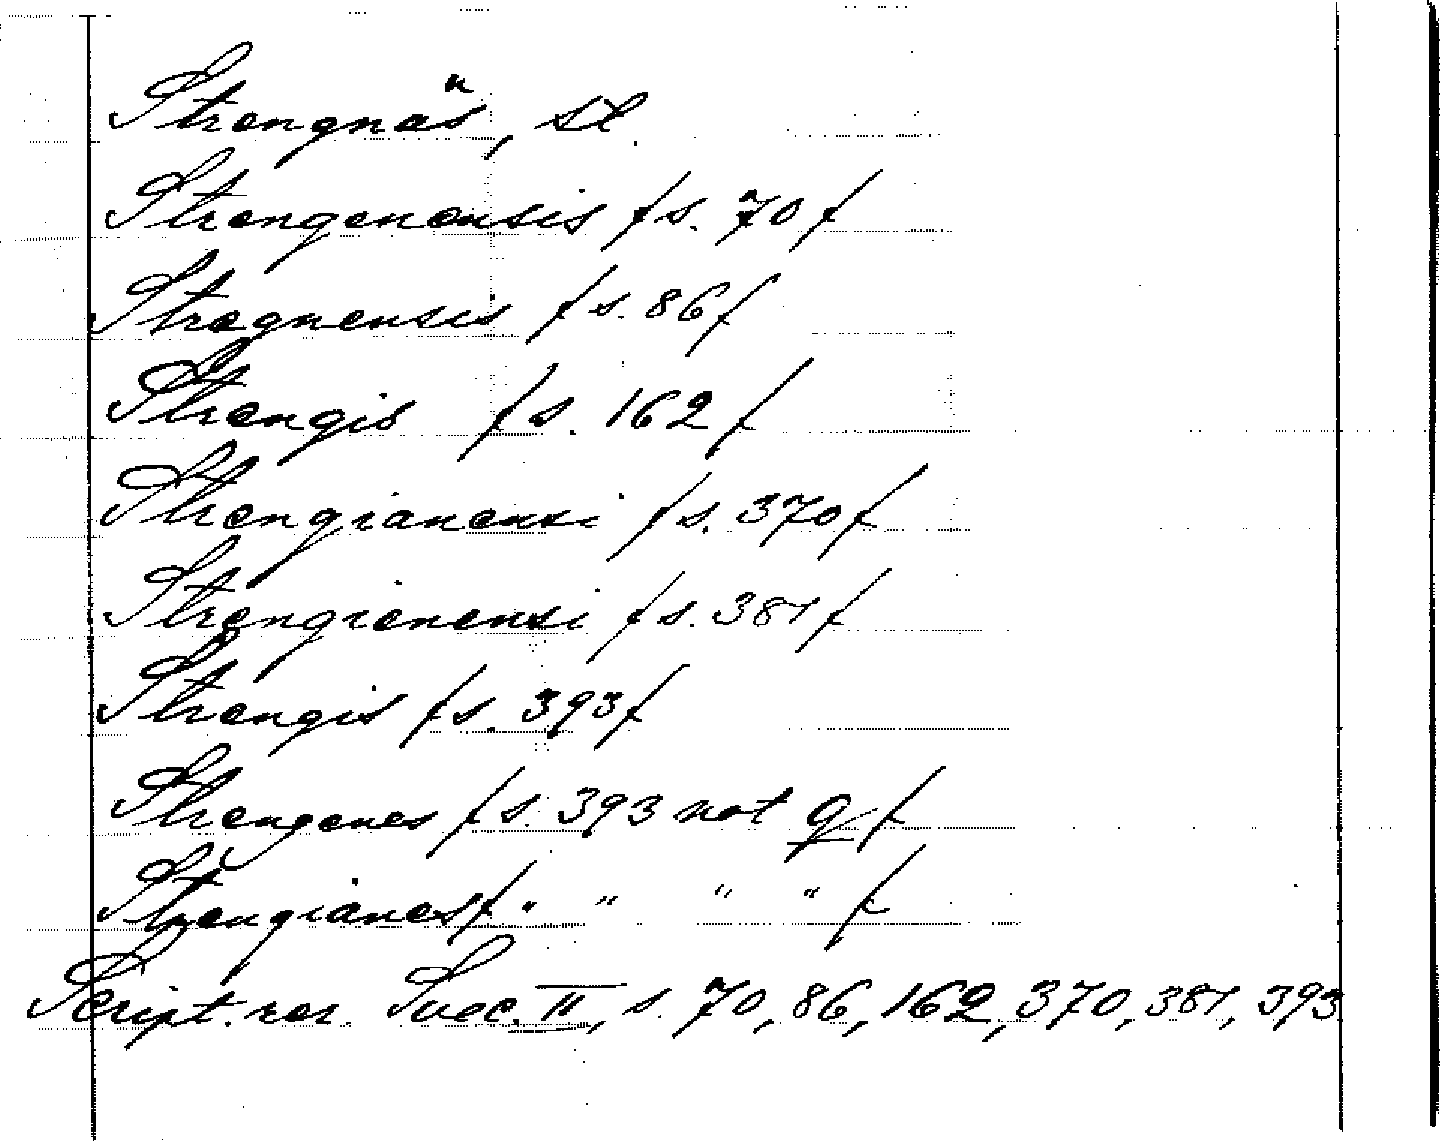 Strengnäs, st.
Strengenensis /s. 70/
Stregnensis /s. 86/
Strengis /s. 162/
Strengianensi /s. 370/
Strengienensi /s. 381/
Strengis /s. 393/
Strengenes /s. 393 not q/
Strengianes/ " " " " /
Script. rer. Suec. II, s. 70, 86, 162, 370, 381, 393